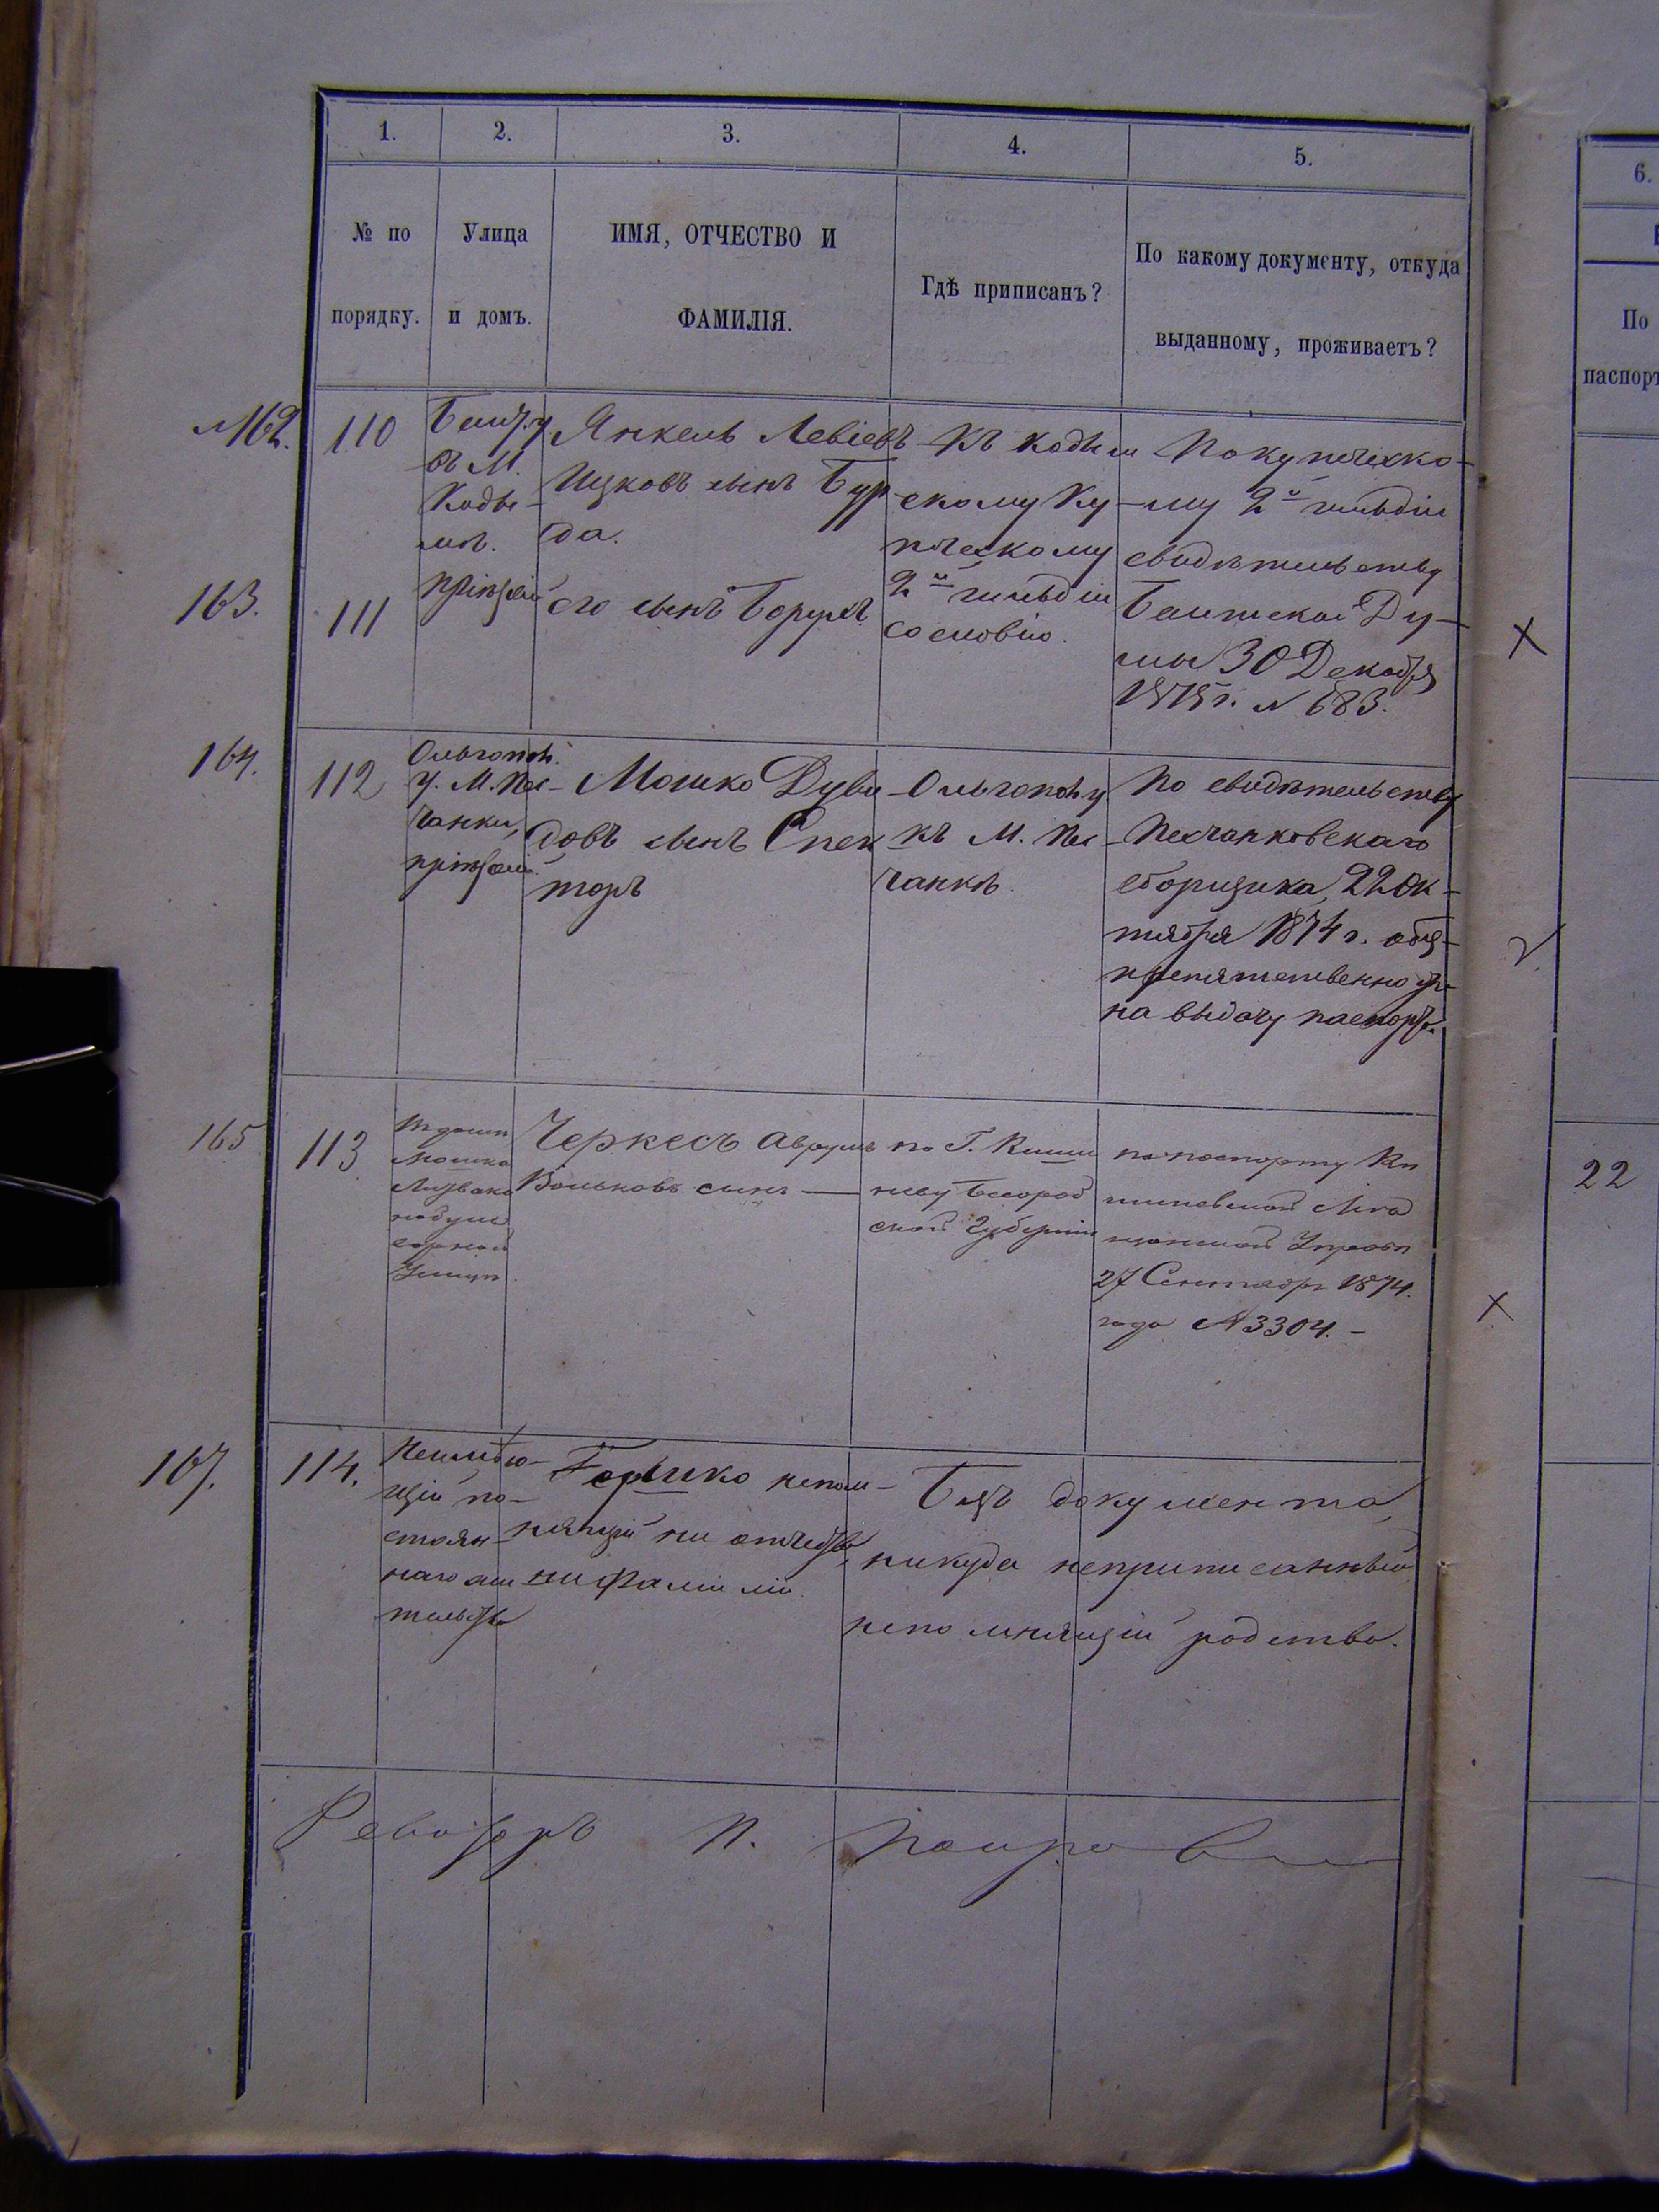 1. 2. 3. 4. 5. 6.
№ по порядку.
Улица и домъ.
ИМЯ, ОТЧЕСТВО И
ФАМИЛІЯ.
Гдѣ приписанъ?
По какому документу, откуда
выданному, проживаетъ?
По
паспорт
№162.
110
Балт. у.
въ М.
Коды-
мѣ.
Янкель Левіевъ
Ицковъ сынъ Бур-
да.
Къ Кодым
скому Ку-
пческому
2й гильдіи
сословію.
По купческо-
му 2й гильдіи
свидѣтельству
Балтской Ду-
мы 30 Декабря
1875 г. № 683.
163.
111
его сынъ Борухъ
164.
112
Ольгопол.
у. М. Пес-
чанки,
Мошко Дуви-
довъ сынъ Спек
торъ
Ольгопол. у.
къ М. Пес-
чанкѣ.
По свидѣтельству
Песчанковскаго
сборщика, 22 Ок-
тября 1874 г.
на выдачу паспорт.
165
113
Мошка
Черкесъ Аврумъ
Вольковъ сынъ —
по Г. Киши
неву Бесораб
ской Губерніи
по паспорту Ки
шиневской Мѣ
щанской Управы
27 Сентября 1874.
года № 3304. -
22
167.
114.
Неимѣю-
щій по-
стоян-
наго жи
тельства
Гершко непом-
нящій ни отчества,
ни фамиліи.
Безъ документа,
никуда неприписанный
непомнящій родства.
П.